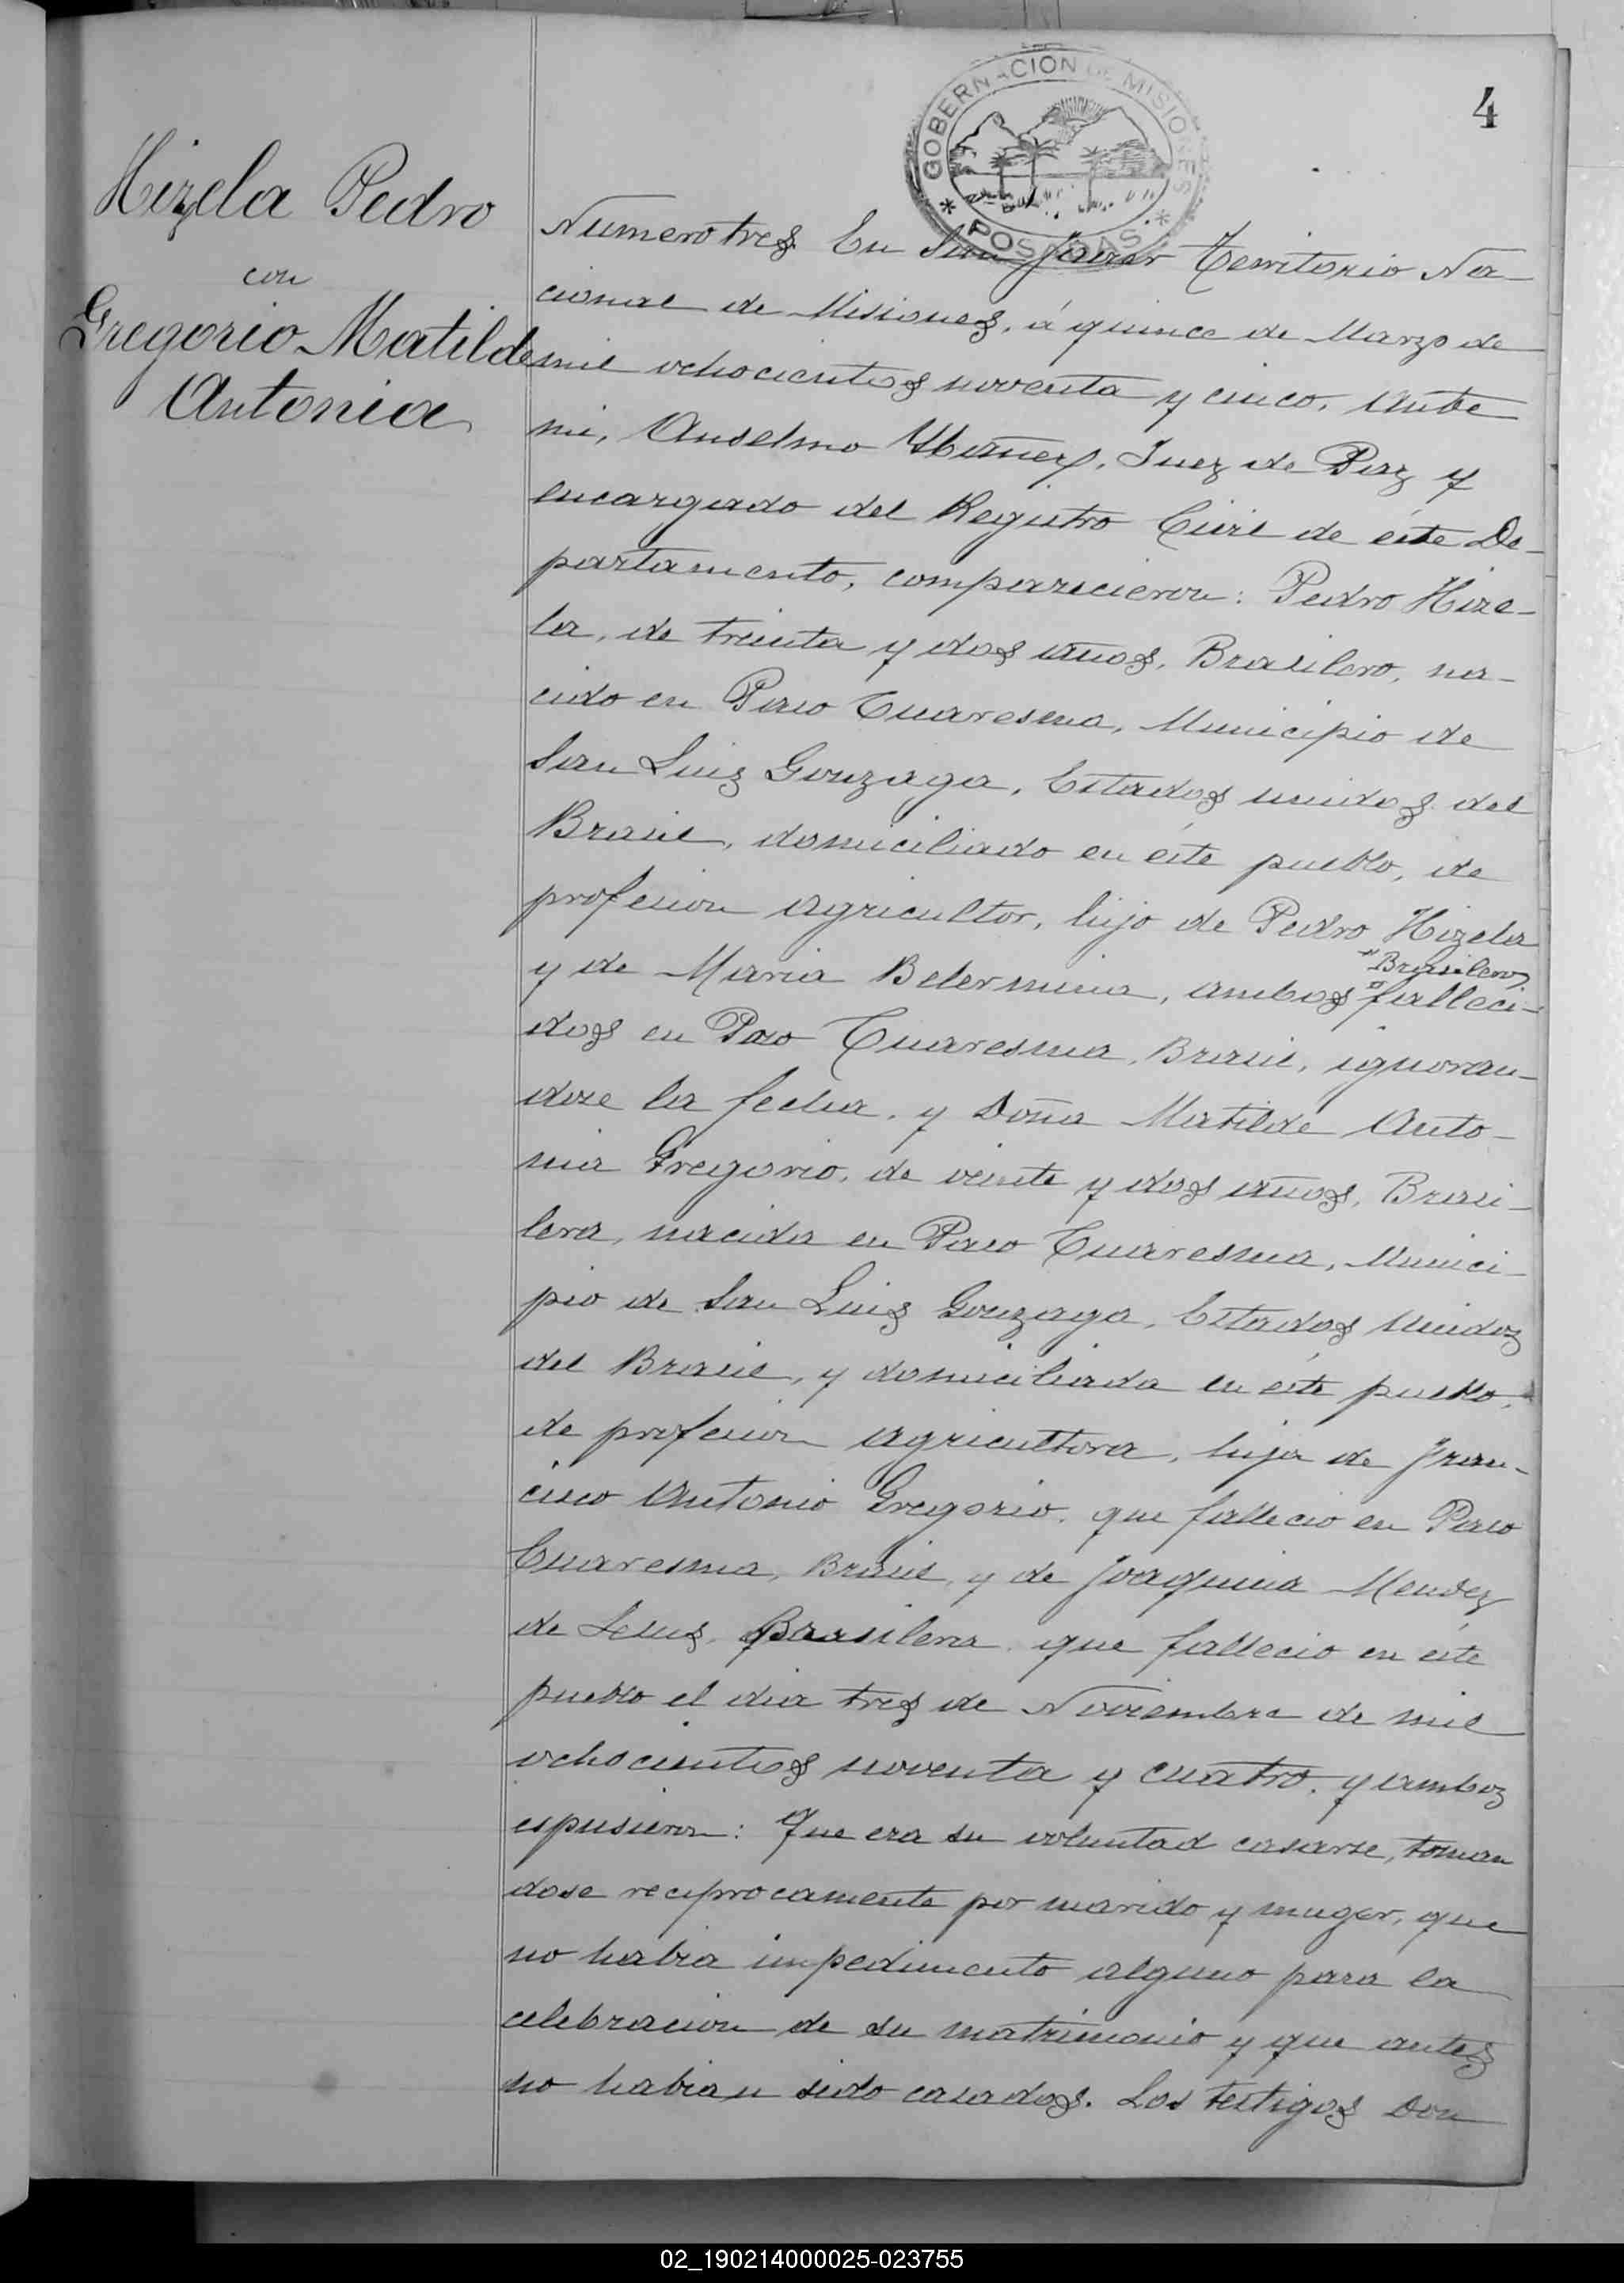 GOBERNACION DE MISIONES
* POSADAS *
4
Hizela Pedro
con
Gregorio Matilde
Antonia
Numero tres. En San Javier Territorio Na-
cional de Misiones, á quince de Marzo de
mil ochocientos noventa y cinco, ante
mi, Anselmo Ybañez, Juez de Paz y
encargado del Registro Civil de éste De-
partamento, comparecieron: Pedro Hize-
la, de treinta y dos años, Brasilero, na-
cido en Paso Cuaresma, Municipio de
San Luis Gonzaga, Estados unidos del
Brasil, domiciliado en éste pueblo, de
profesion agricultor, hijo de Pedro Hizela
y de Maria Belermina, ambos "Brasileros" falleci-
dos en Paso Cuaresma, Brasil, ignoran-
dose la fecha. y Doña Matilde Anto-
nia Gregorio, de veinte y dos años, Brasi-
lera, nacida en Paso Cuaresma, Munici-
pio de San Luis Gonzaga, Estados Unidos
del Brasil, y domiciliada en éste pueblo,
de profesion agricultora, hija de Fran-
cisco Antonio Gregorio, que fallecio en Paso
Cuaresma, Brasil, y de Joaquina Mendez
de Jesus, Brasilera, que fallecio en éste
pueblo el dia tres de Noviembre de mil
ochocientos noventa y cuatro, y ambos
espusieron: Que era su voluntad casarse, toman
dose reciprocamente por marido y muger, que
no habia impedimento alguno para la
celebracion de su matrimonio y que antes
no habian sido casados. Los testigos Don
02_190214000025-023755